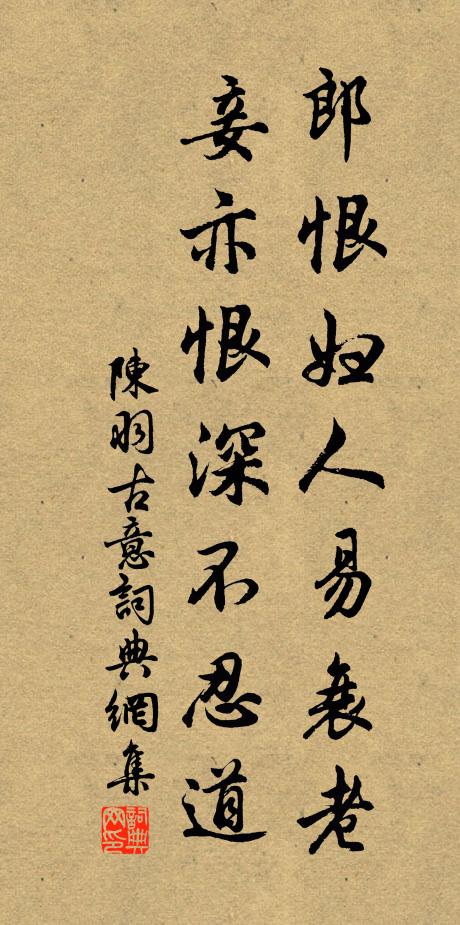 郎恨妇人易衰老
妾亦恨深不忍道
陳羽古意詞典網集
詞典网印